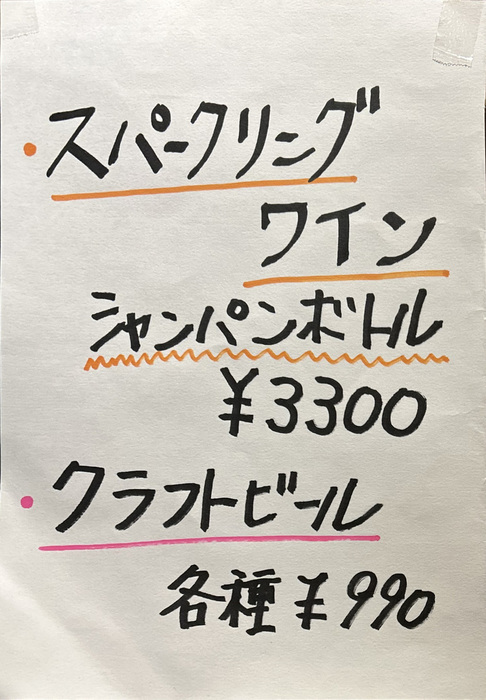 ・スパークリング
ワイン
シャンパンボトル
¥3300
・クラフトビール
各種¥990